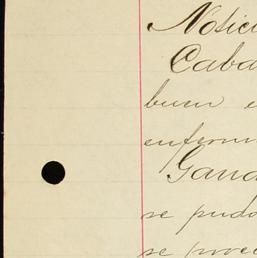 Notici
Caba
buen e
enferm
Gana
se pudo
se proce